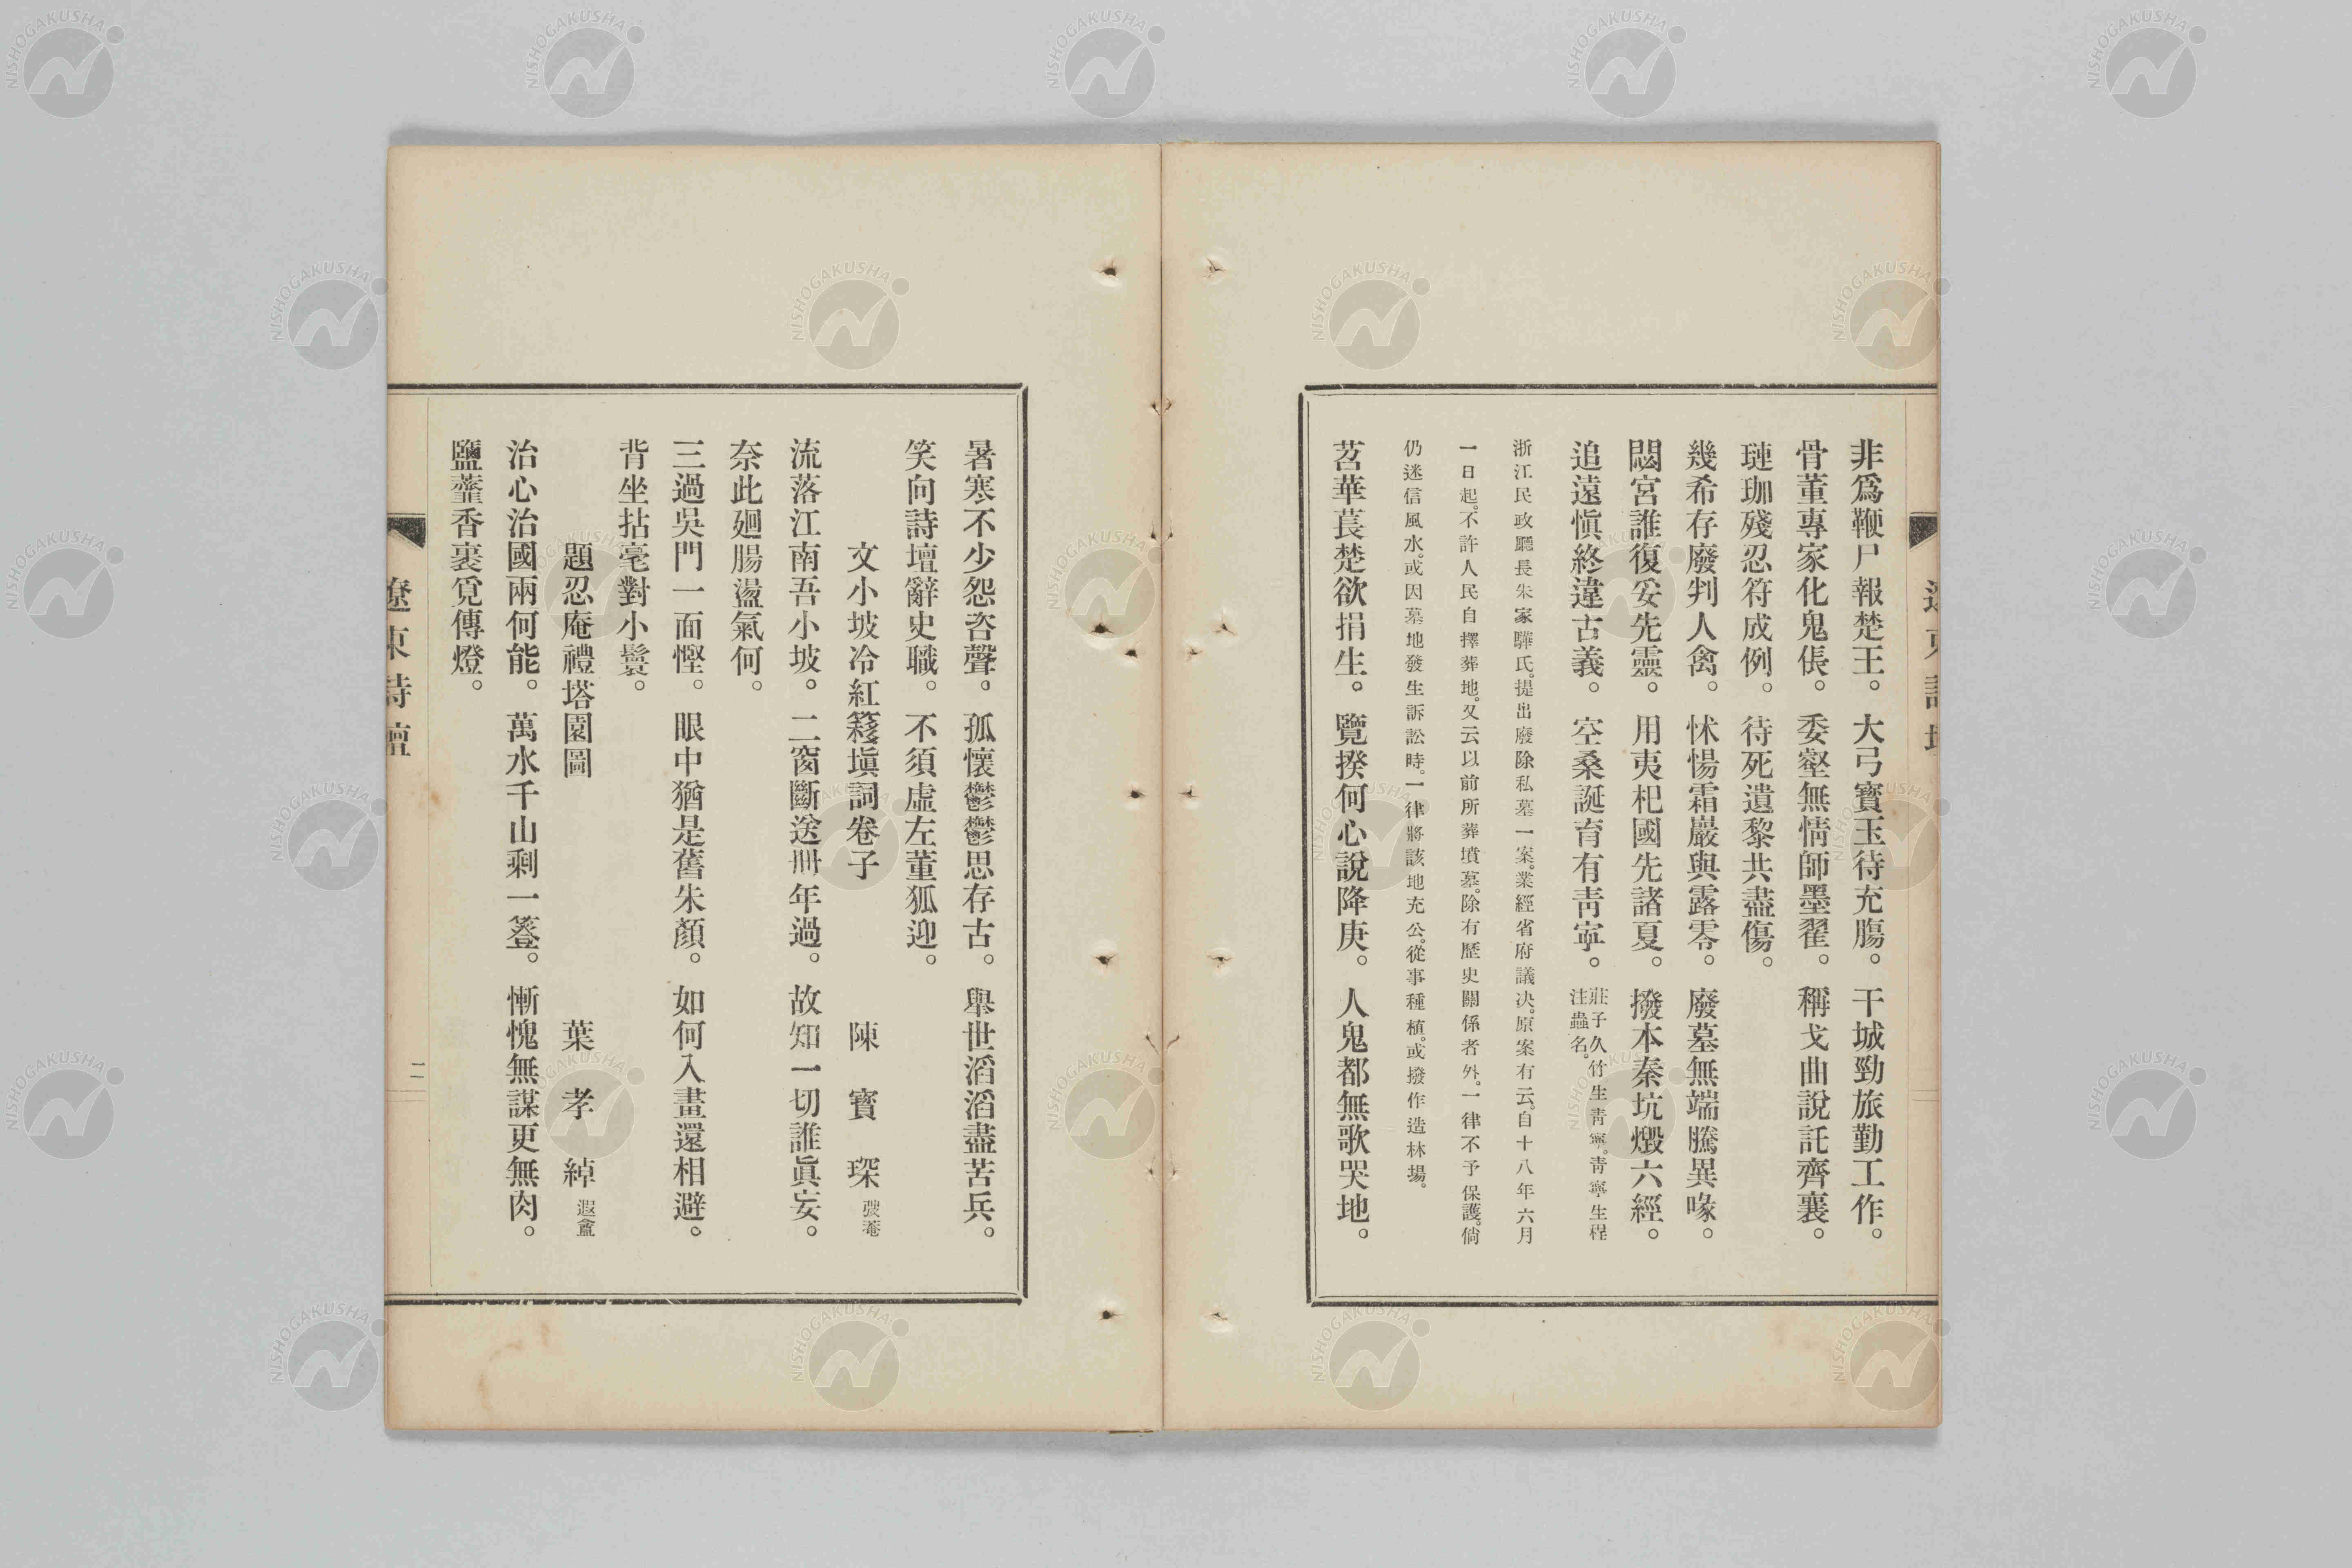 非爲鞭尸報楚王。大弓寶玉待充膓。干城勁旅勤工作。
骨董專家化鬼倀。委壑無情師墨翟。稱戈曲說託齊襄。
璉珈殘忍符成例。待死遺黎共盡傷。
幾希存廢判人禽。怵惕霜嚴與露零。廢墓無端騰異喙。
閟宮誰復妥先靈。用夷杞國先諸夏。撥本秦坑燬六經。
追遠愼終違古義。空桑誕育有靑寧。莊子久竹生靑寧。靑寧生程
注蟲名。
浙江民政廳長朱家驊氏。提出廢除私墓一案。業經省府議決。原案有云。自十八年六月
一日起。不許人民自擇葬地。又云以前所葬墳墓。除有歷史關係者外。一律不予保護。倘
仍迷信風水。或因墓地發生訴訟時。一律將該地充公。從事種植。或撥作造林場。
苕華萇楚欲捐生。覽揆何心說降庚。人鬼都無歌哭地。
暑寒不少怨咨聲。孤懷鬱鬱思存古。舉世滔滔盡苦兵。
笑向詩壇辭史職。不須虛左董狐迎。
文小坡冷紅簃塡詞卷子 陳寶琛 弢菴
流落江南吾小坡。二窗斷送卌年過。故知一切誰眞妄。
奈此廻腸盪氣何。
三過吳門一面慳。眼中猶是舊朱顏。如何入畫還相避。
背坐拈毫對小鬟。
題忍庵禮塔園圖 葉孝綽 遐盦
治心治國兩何能。萬水千山剩一簦。慚愧無謀更無肉。
鹽虀香裏覓傳燈。
遼東詩壇
二